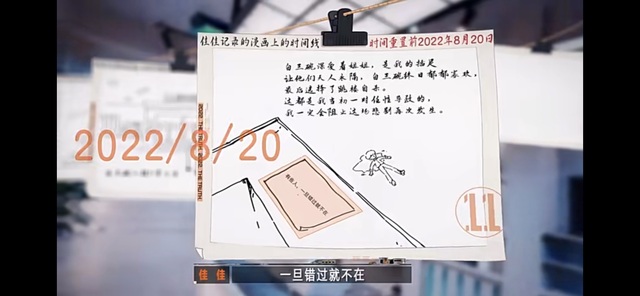 佳佳记录的漫画上的时间线
时间重置前2022年8月20日
白玉婉深爱着姐姐，是我的插足
让他们天人永隔，白玉婉终日郁郁寡欢，
最后选择了跳楼自杀。
这都是我当初一时任性导致的，
我一定会阻止这场悲剧再次发生。
2022/8/20
有些人，一旦错过就不在
11
佳佳
一旦错过就不在